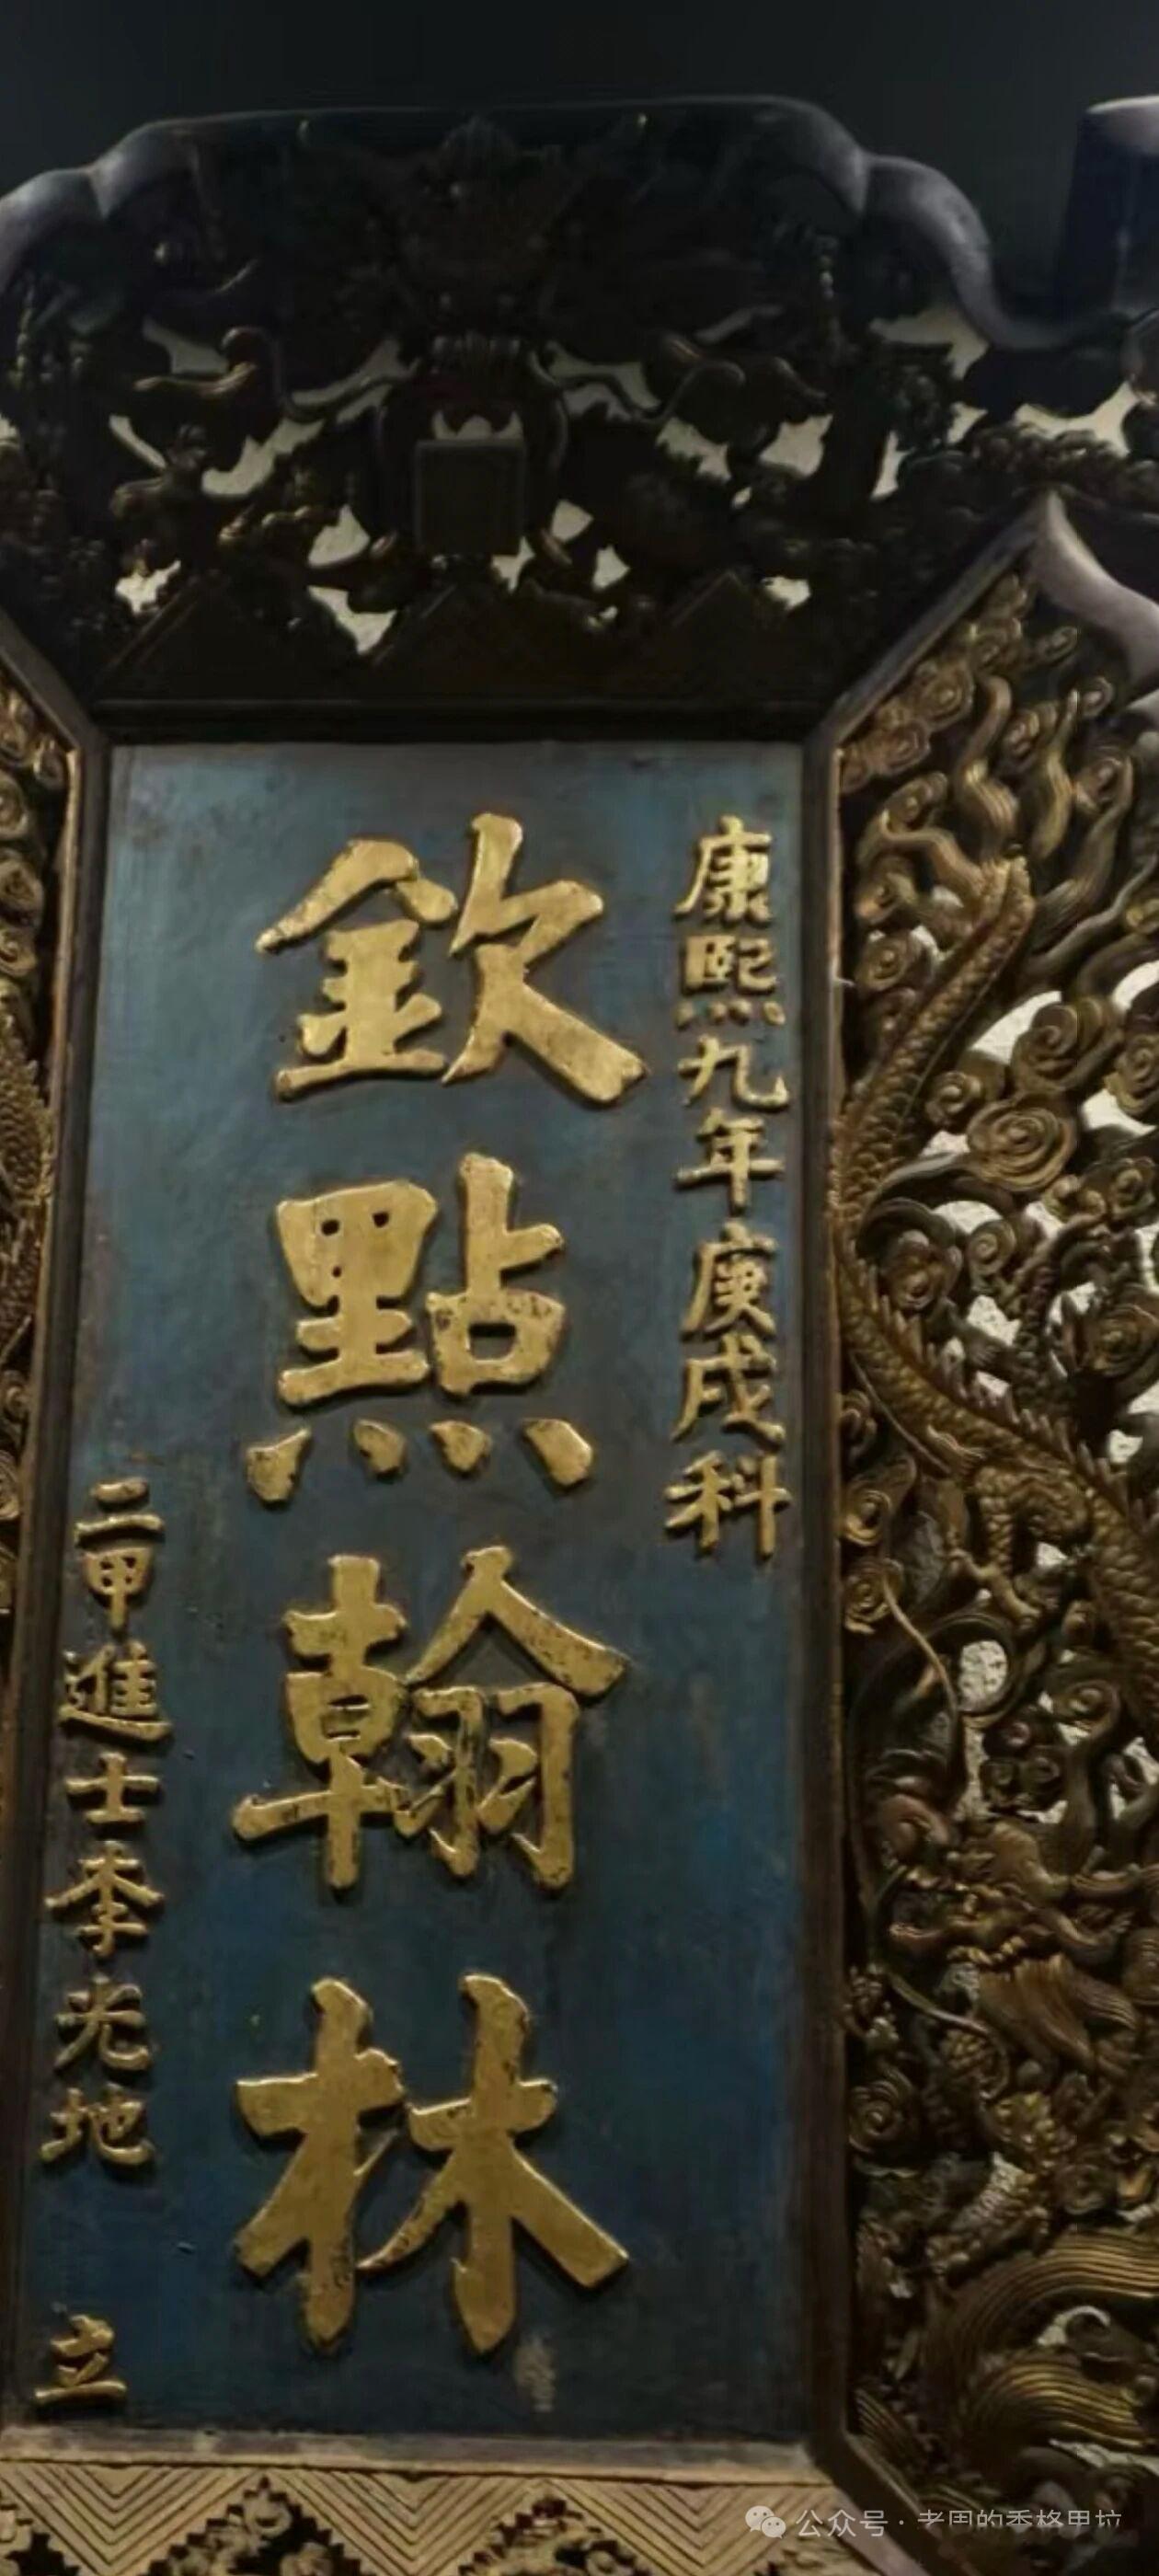 康熙九年庚戌科
欽點翰林
二甲進士李光地
立
公众号·老周的香格里拉